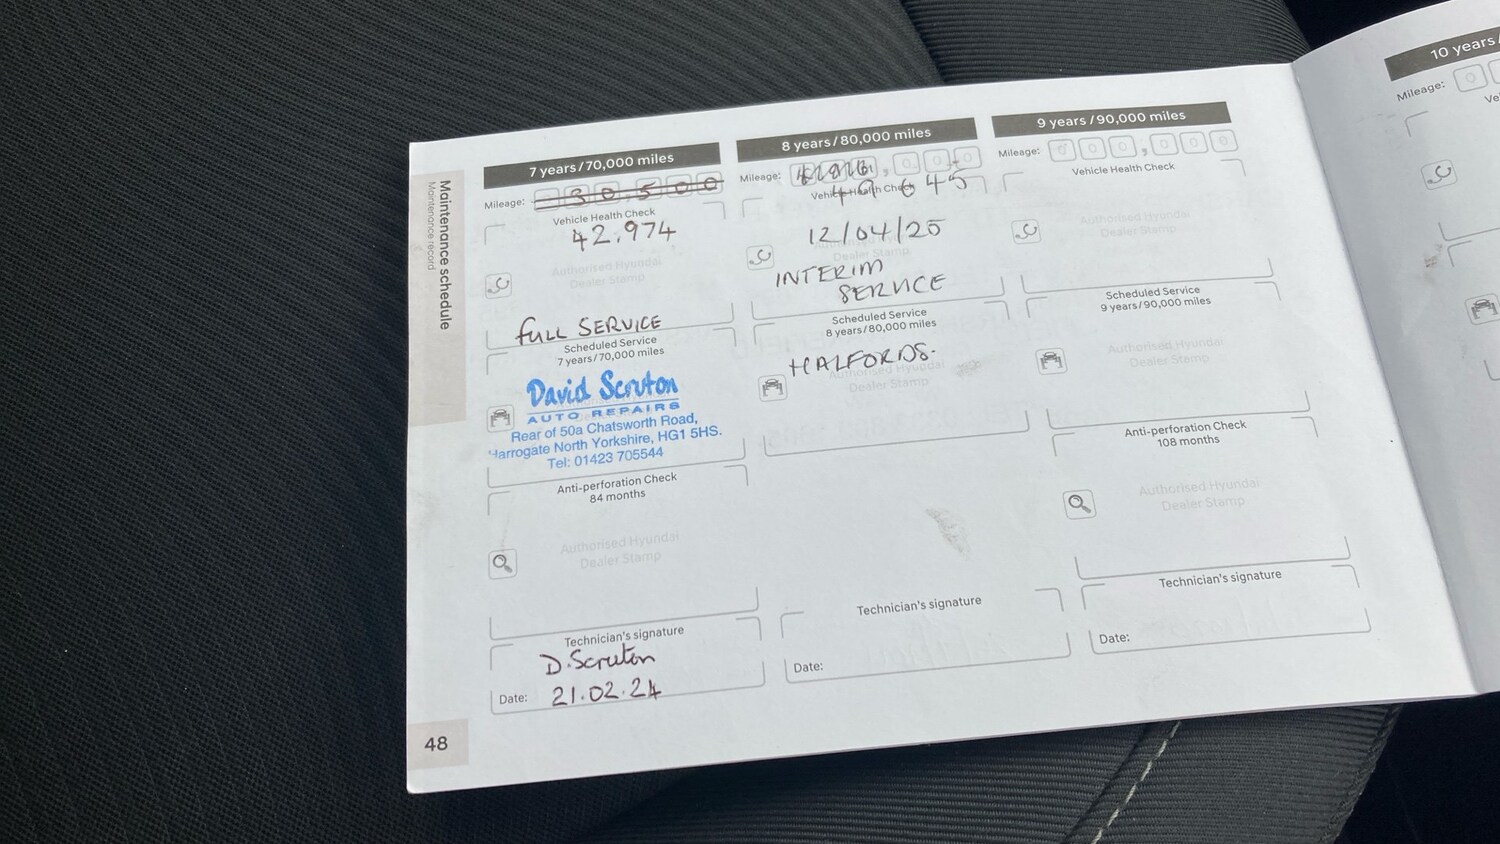 Maintenance schedule
Maintenance record
7 years / 70,000 miles
Mileage: 30,500
Vehicle Health Check
42.974
Authorised Hyundai
Dealer Stamp
FULL SERVICE
Scheduled Service
7 years/70,000 miles
David Scruton
AUTO REPAIRS
Rear of 50a Chatsworth Road,
Harrogate North Yorkshire, HG1 5HS.
Tel: 01423 705544
Anti-perforation Check
84 months
Authorised Hyundai
Dealer Stamp
Technician's signature
D.Scruton
Date: 21.02.24
48
8 years / 80,000 miles
Mileage:
Vehicle Health Check
12/04/25
Authorised Hyundai
Dealer Stamp
INTERIM
SERVICE
Scheduled Service
8 years/80,000 miles
HALFORDS.
Authorised Hyundai
Dealer Stamp
Technician's signature
Date:
9 years / 90,000 miles
Mileage: 000,000
Vehicle Health Check
Authorised Hyundai
Dealer Stamp
Scheduled Service
9 years/90,000 miles
Authorised Hyundai
Dealer Stamp
Anti-perforation Check
108 months
Authorised Hyundai
Dealer Stamp
Technician's signature
Date:
10 years/
Mileage: 0